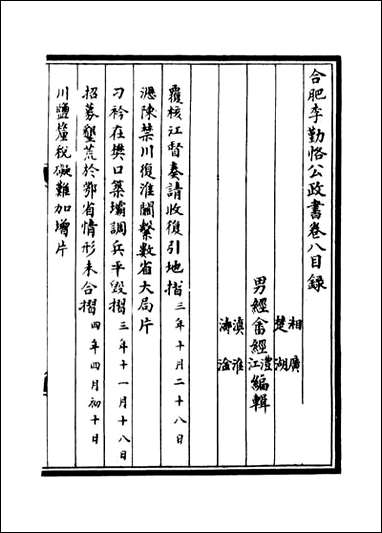 合肥李勤恪公政書卷八目録
湘　廣
楚　湖
男經畬經澧江編輯
滇　淮
沛　淦
覆核江督奏請收復引地摺　三年十月二十八日
瀝陳禁川復淮關繫數省大局片
刁衿在樊口築壩調兵平毀摺　三年十一月十八日
招募墾荒於鄂省情形未合摺　四年四月初十日
川鹽釐稅礙難加增片